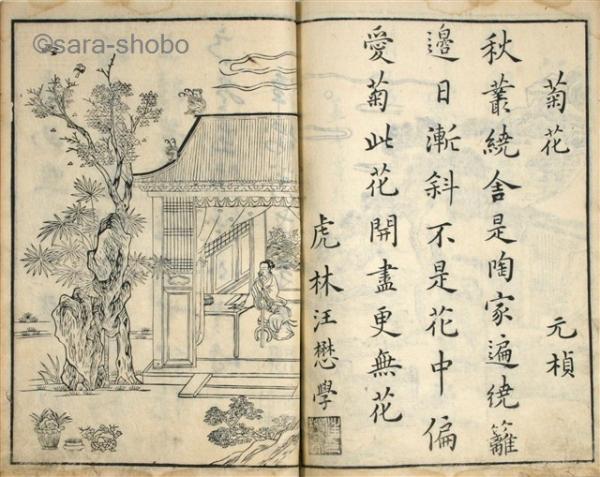 菊花 元楨
秋叢繞舍是陶家遍繞籬
邊日漸斜不是花中偏
愛菊此花開盡更無花
虎林汪懋學
©sara-shobo